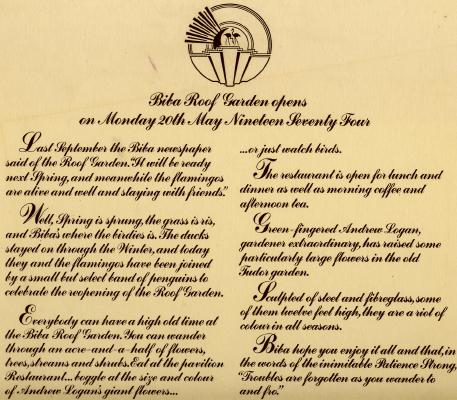 Biba Roof Garden opens
on Monday 20th May Nineteen Seventy Four
Last September the Biba newspaper
said of the Roof Garden: "It will be ready
next Spring, and meanwhile the flamingos
are alive and well and staying with friends."
Well, Spring is sprung, the grass is ris,
and Biba's where the birdies is. The ducks
stayed on through the Winter, and today
they and the flamingos have been joined
by a small but select band of penguins to
celebrate the reopening of the Roof Garden.
Everybody can have a high old time at
the Biba Roof Garden. You can wander
through an acre-and-a-half of flowers,
trees, streams and shrubs. Eat at the pavilion
Restaurant... boggle at the size and colour
of Andrew Logan's giant flowers...
...or just watch birds.
The restaurant is open for lunch and
dinner as well as morning coffee and
afternoon tea.
Green-fingered Andrew Logan,
gardener extraordinary, has raised some
particularly large flowers in the old
Tudor garden.
Sculpted of steel and fibreglass, some
of them twelve feet high, they are a riot of
colour in all seasons.
Biba hope you enjoy it all and that, in
the words of the inimitable Patience Strong,
"Troubles are forgotten as you wander to
and fro."